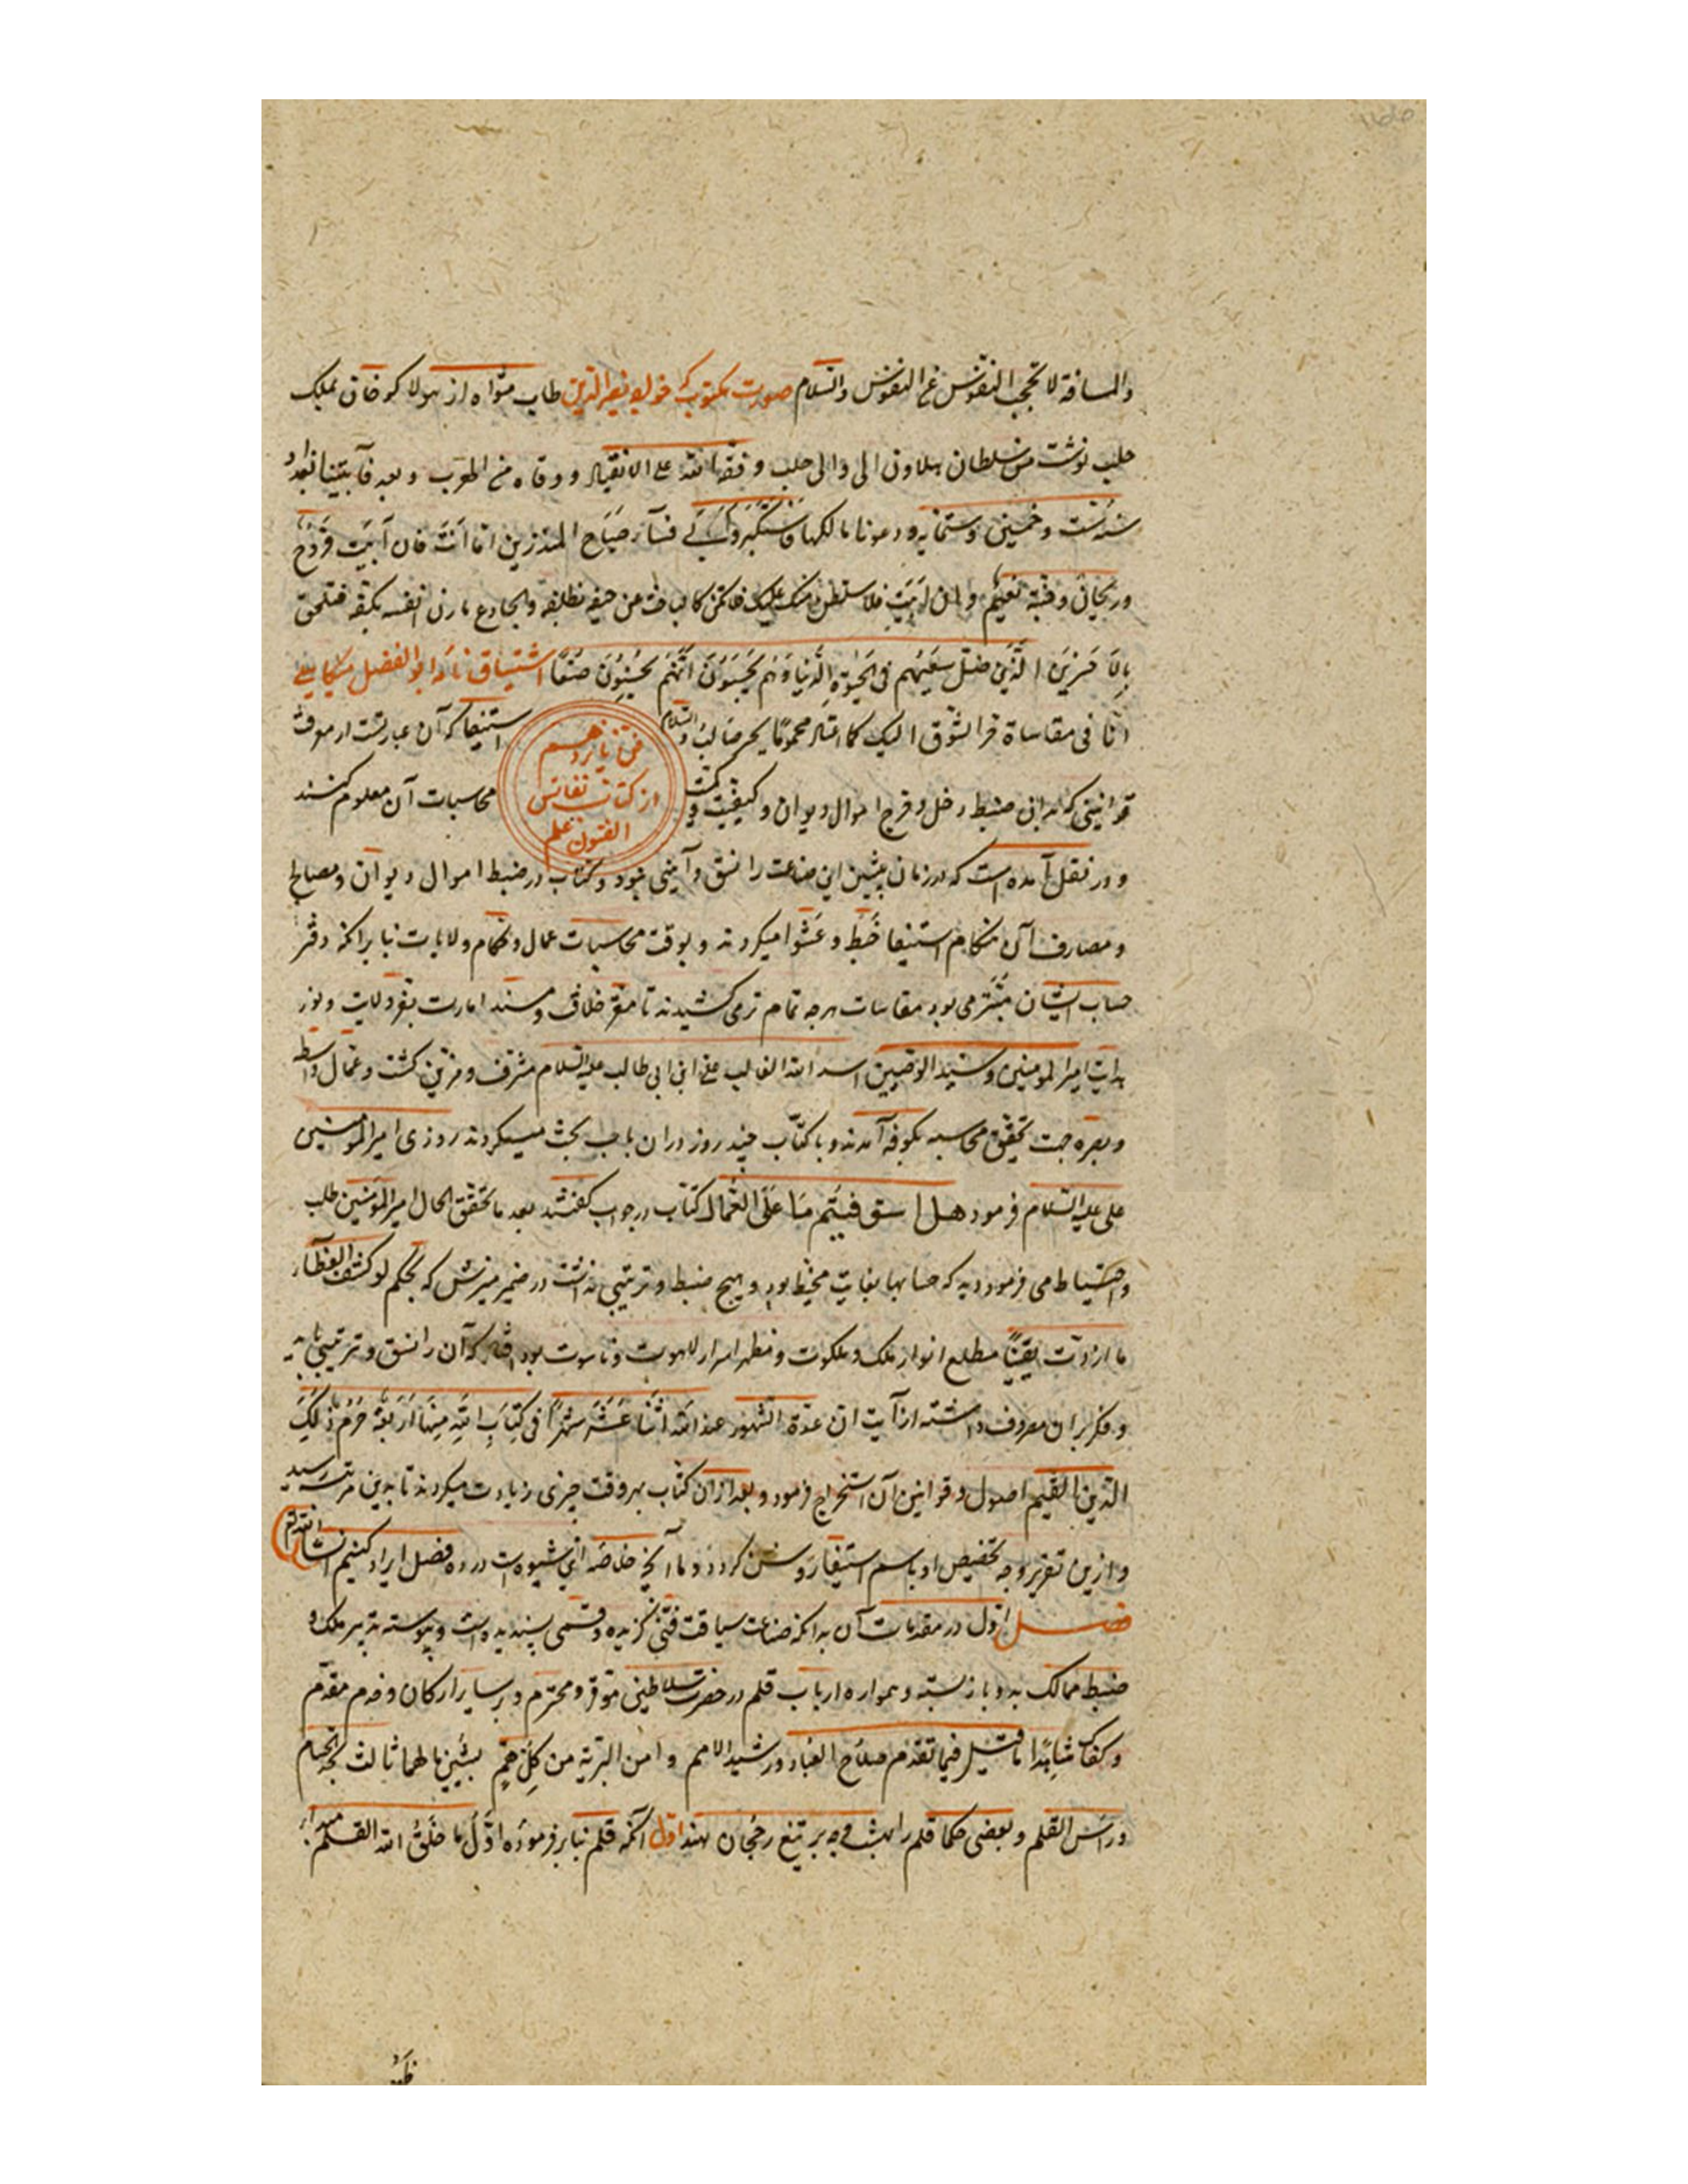 والمسافة لا تحجب النفوس عن النفوس والسلام صورت مکتوب که خواجه نصیر الدین طاب مثواه از هولاکو خان بملک
حلب نوشت من سلطان هلاون الی والی حلب وفقه الله علی الانقیاد ووقاه من الهرب وبعد فاتینا بغداد
سنه ست وخمسین وستمایه ودعونا مالکها فاستکبر وابی فسآء صباح المنذرین اما انت فان اتیت فروح
وریحان وجنة نعیم وان ابیت فلاسلطن منک علیک فلا تکن کالباحث عن حتفه بظلفه والجادع مارن انفسه بکفه فتلحق
بالاخسرین الذین ضل سعیهم فی الحیوة الدنیا وهم یحسبون انهم یحسنون صنعا اشتیاق نامه ابو الفضل میکالی
انا فی مقاساة الشوق الیک محموما والسلام
فن یازدهم از کتاب نفائس الفنون علم
استیفا که آن عبارتست از معرفت
قوانینی که بدان ضبط دخل و خرج اموال دیوان و کیفیت محاسبات آن معلوم کنند
و در نقل آمده است که در زمان پیشین این صناعت را نسق و آیینی نبود و کتاب در ضبط اموال دیوان و مصالح
و مصارف آن هنگام استیفا خبط و عشوا میکردند و بوقت محاسبات عمال و حکام ولایات بنابر آنکه دفتر
حساب ایشان مبتر می بود مقاسات هرچه تمام تر می کشیدند تا مقر خلافت و مسند امارت بفر ولایت و نور
هدایت امیر المومنین و سید الوصیین اسد الله الغالب علی ابن ابی طالب علیه السلام مشرف و مزین گشت و عمال واسط
و بصره جهت تحقیق محاسبه بکوفه آمدند و با کتاب چند روز در ان باب بحث میکردند روزی امیر المومنین
علی علیه السلام فرمود هل استوفیتم ما علی العمال کتاب در جواب گفتند بعد ما تحقق الحال امیر المومنین طلب
واحتیاط می فرمود دید که حسابها بغایت مخبط بود و هیچ ضبط و ترتیبی نداشت در ضمیر منیرش که بحکم لو کشف الغطآء
ما ازددت یقینا مطلع انوار ملک و ملکوت و مظهر اسرار لاهوت و ناسوت بود که آن را نسق و ترتیبی باید
و فکر بران مصروف داشته از آیت ان عدة الشهور عند الله اثنا عشر شهرا فی کتاب الله منها اربعة حرم ذلک
الدین القیم اصول و قوانین آن استخراج فرمود و بعد ازان کتاب بهر وقت چیزی زیادت میکردند تا بدین مرتبه رسید
و ازین تقریر وجه تخصیص او باسم استیفا روشن کردد و ما آنچ خلاصه این شیوه است در ده فصل ایراد کنیم انشا الله تعم
فصل اول در مقدمات آن بدانکه صناعت سیاقت فنی گزیده و قسمی پسندیده است و پیوسته تدبیر ملک و
ضبط ممالک بدو باز بسته و همواره ارباب قلم در حضرت سلاطین موقر و محترم و بر سایر ارکان و خدم مقدم
وکفاک شاهدا ما قیل فیما تقدم صلاح العباد ورشید الامم وامن البریة من کل هم بشیین ما لهما ثالث الحسام
وراس القلم و بعضی حکما قلم را بهشت وجه بر تیغ رجحان نهند اول آنکه قلم بنابر فرموده اول ما خلق الله القلم